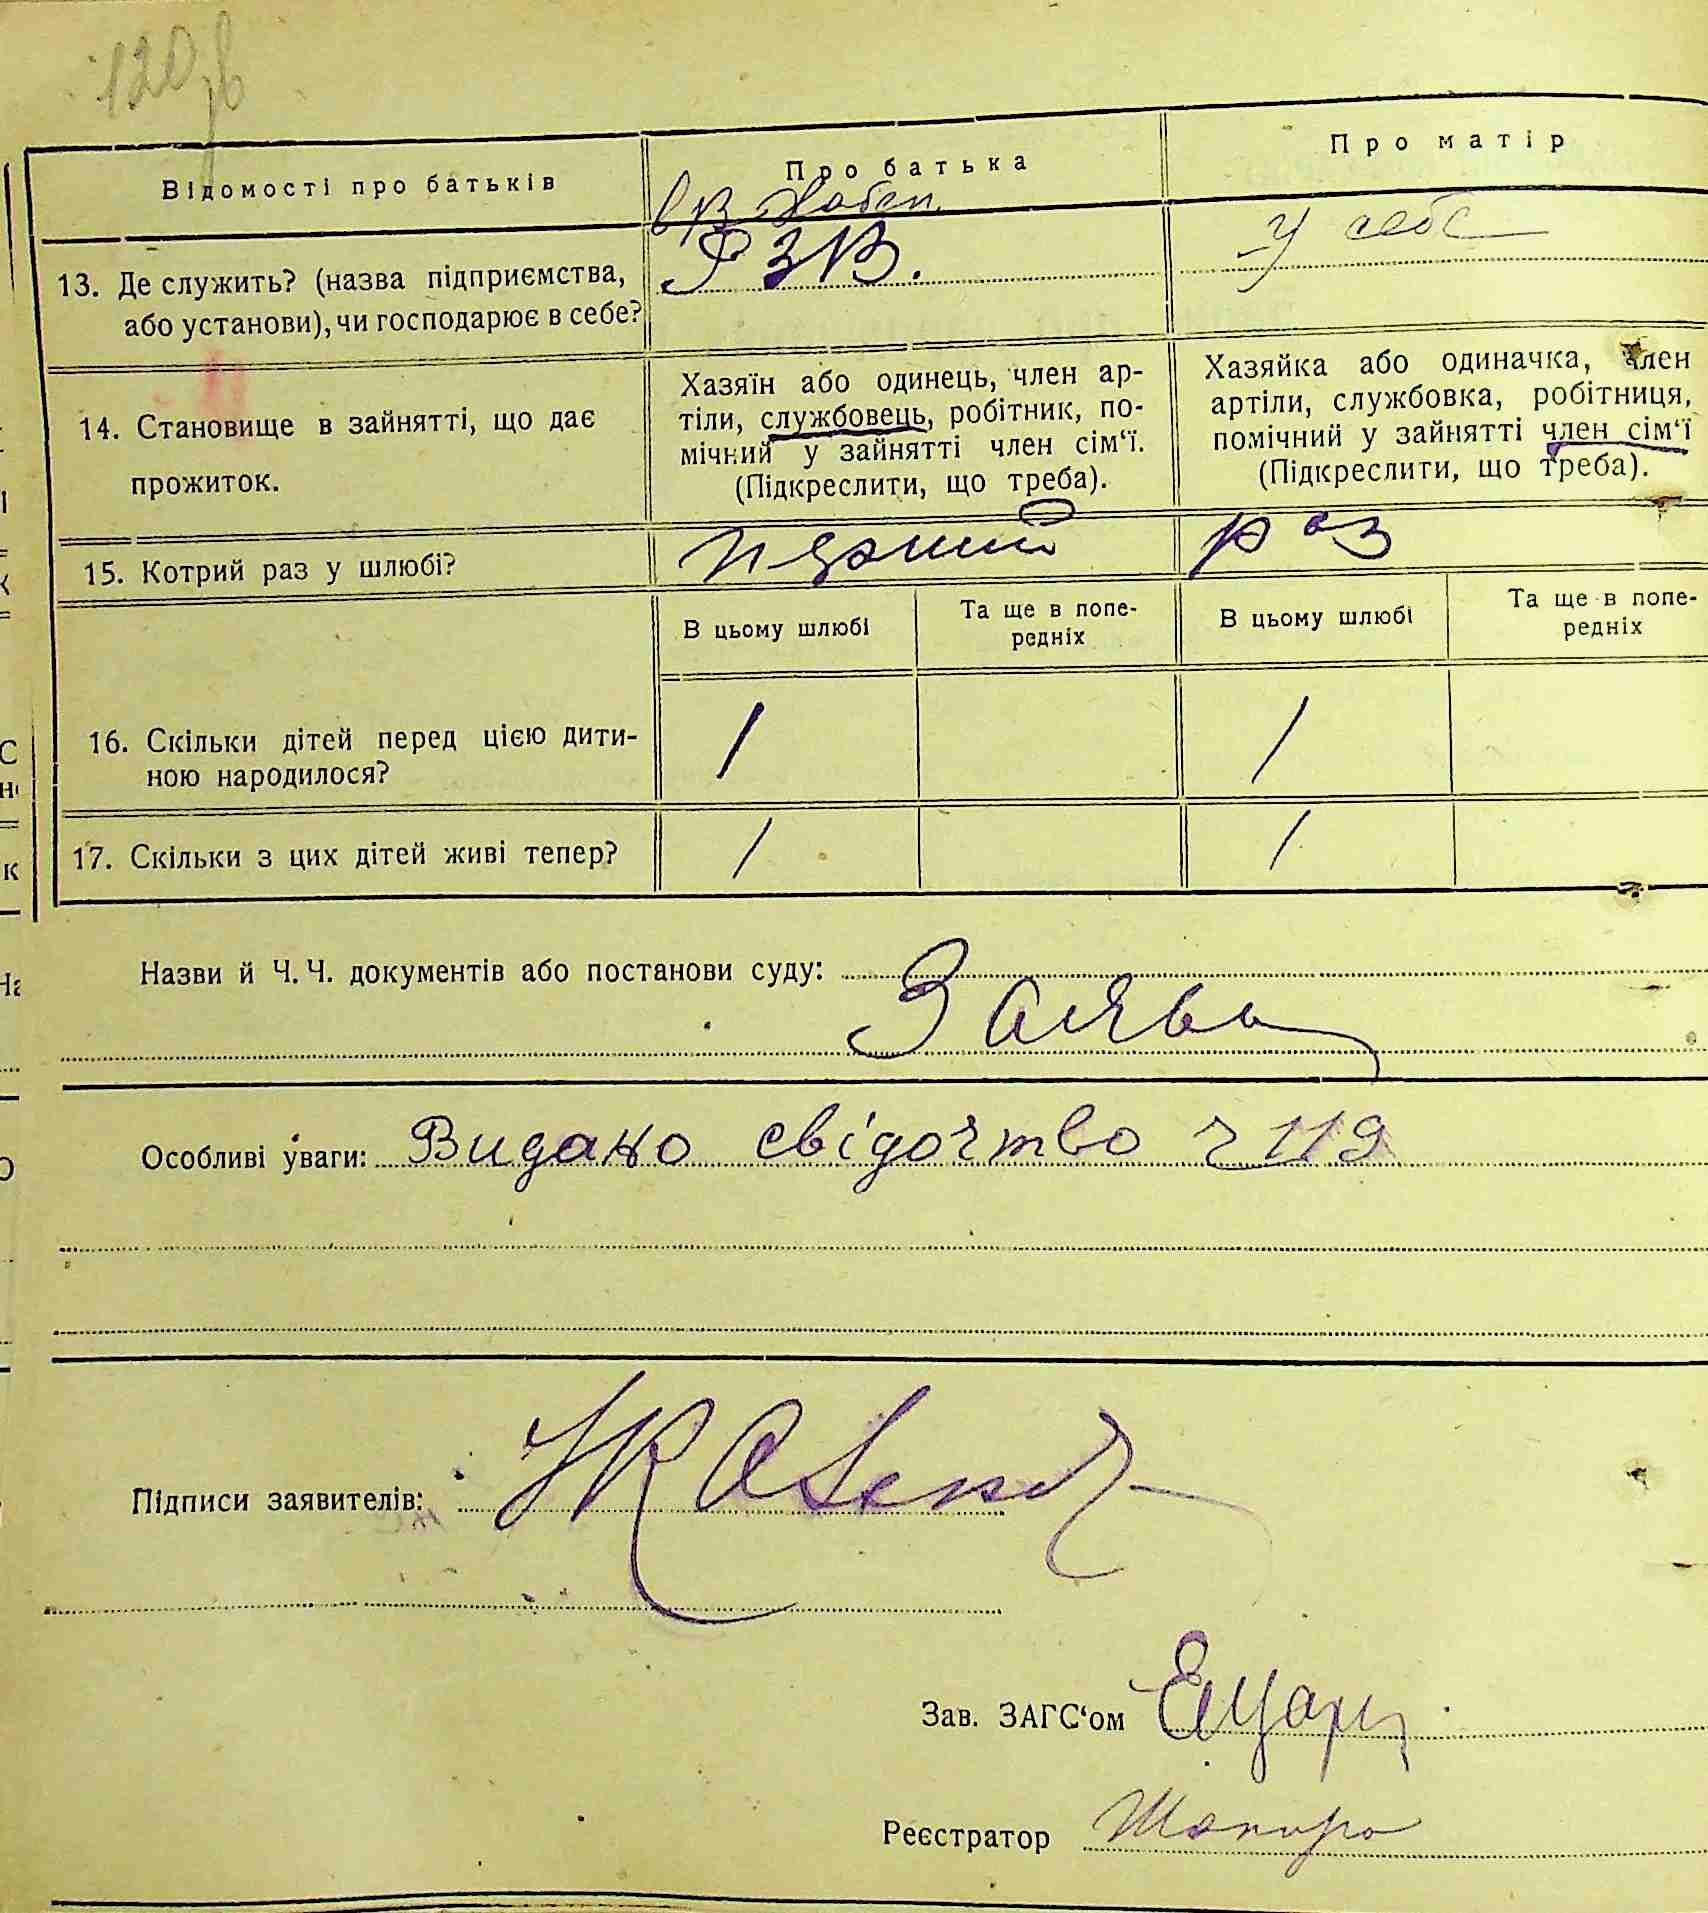 120 зв
Відомості про батьків
Про батька
Про матір
в
РЗВ.
у себе
13. Де служить? (назва підприємства,
або установи), чи господарює в себе?
14. Становище в зайнятті, що дає
прожиток.
Хазяїн або одинець, член ар-
тіли, службовець, робітник, по-
мічний у зайнятті член сім‘ї.
(Підкреслити, що треба).
Хазяйка або одиначка, член
артіли, службовка, робітниця,
помічний у зайнятті член сім‘ї
(Підкреслити, що треба).
15. Котрий раз у шлюбі?
перший
раз
В цьому шлюбі
Та ще в попе-
редніх
В цьому шлюбі
Та ще в попе-
редніх
16. Скільки дітей перед цією дити-
ною народилося?
1
1
17. Скільки з цих дітей живі тепер?
1
1
Назви й Ч. Ч. документів або постанови суду:
Заява
Особливі уваги: Видано свідочтво ч 119
Підписи заявителів:
Зав. ЗАГС‘ом
Реєстратор Шапиро